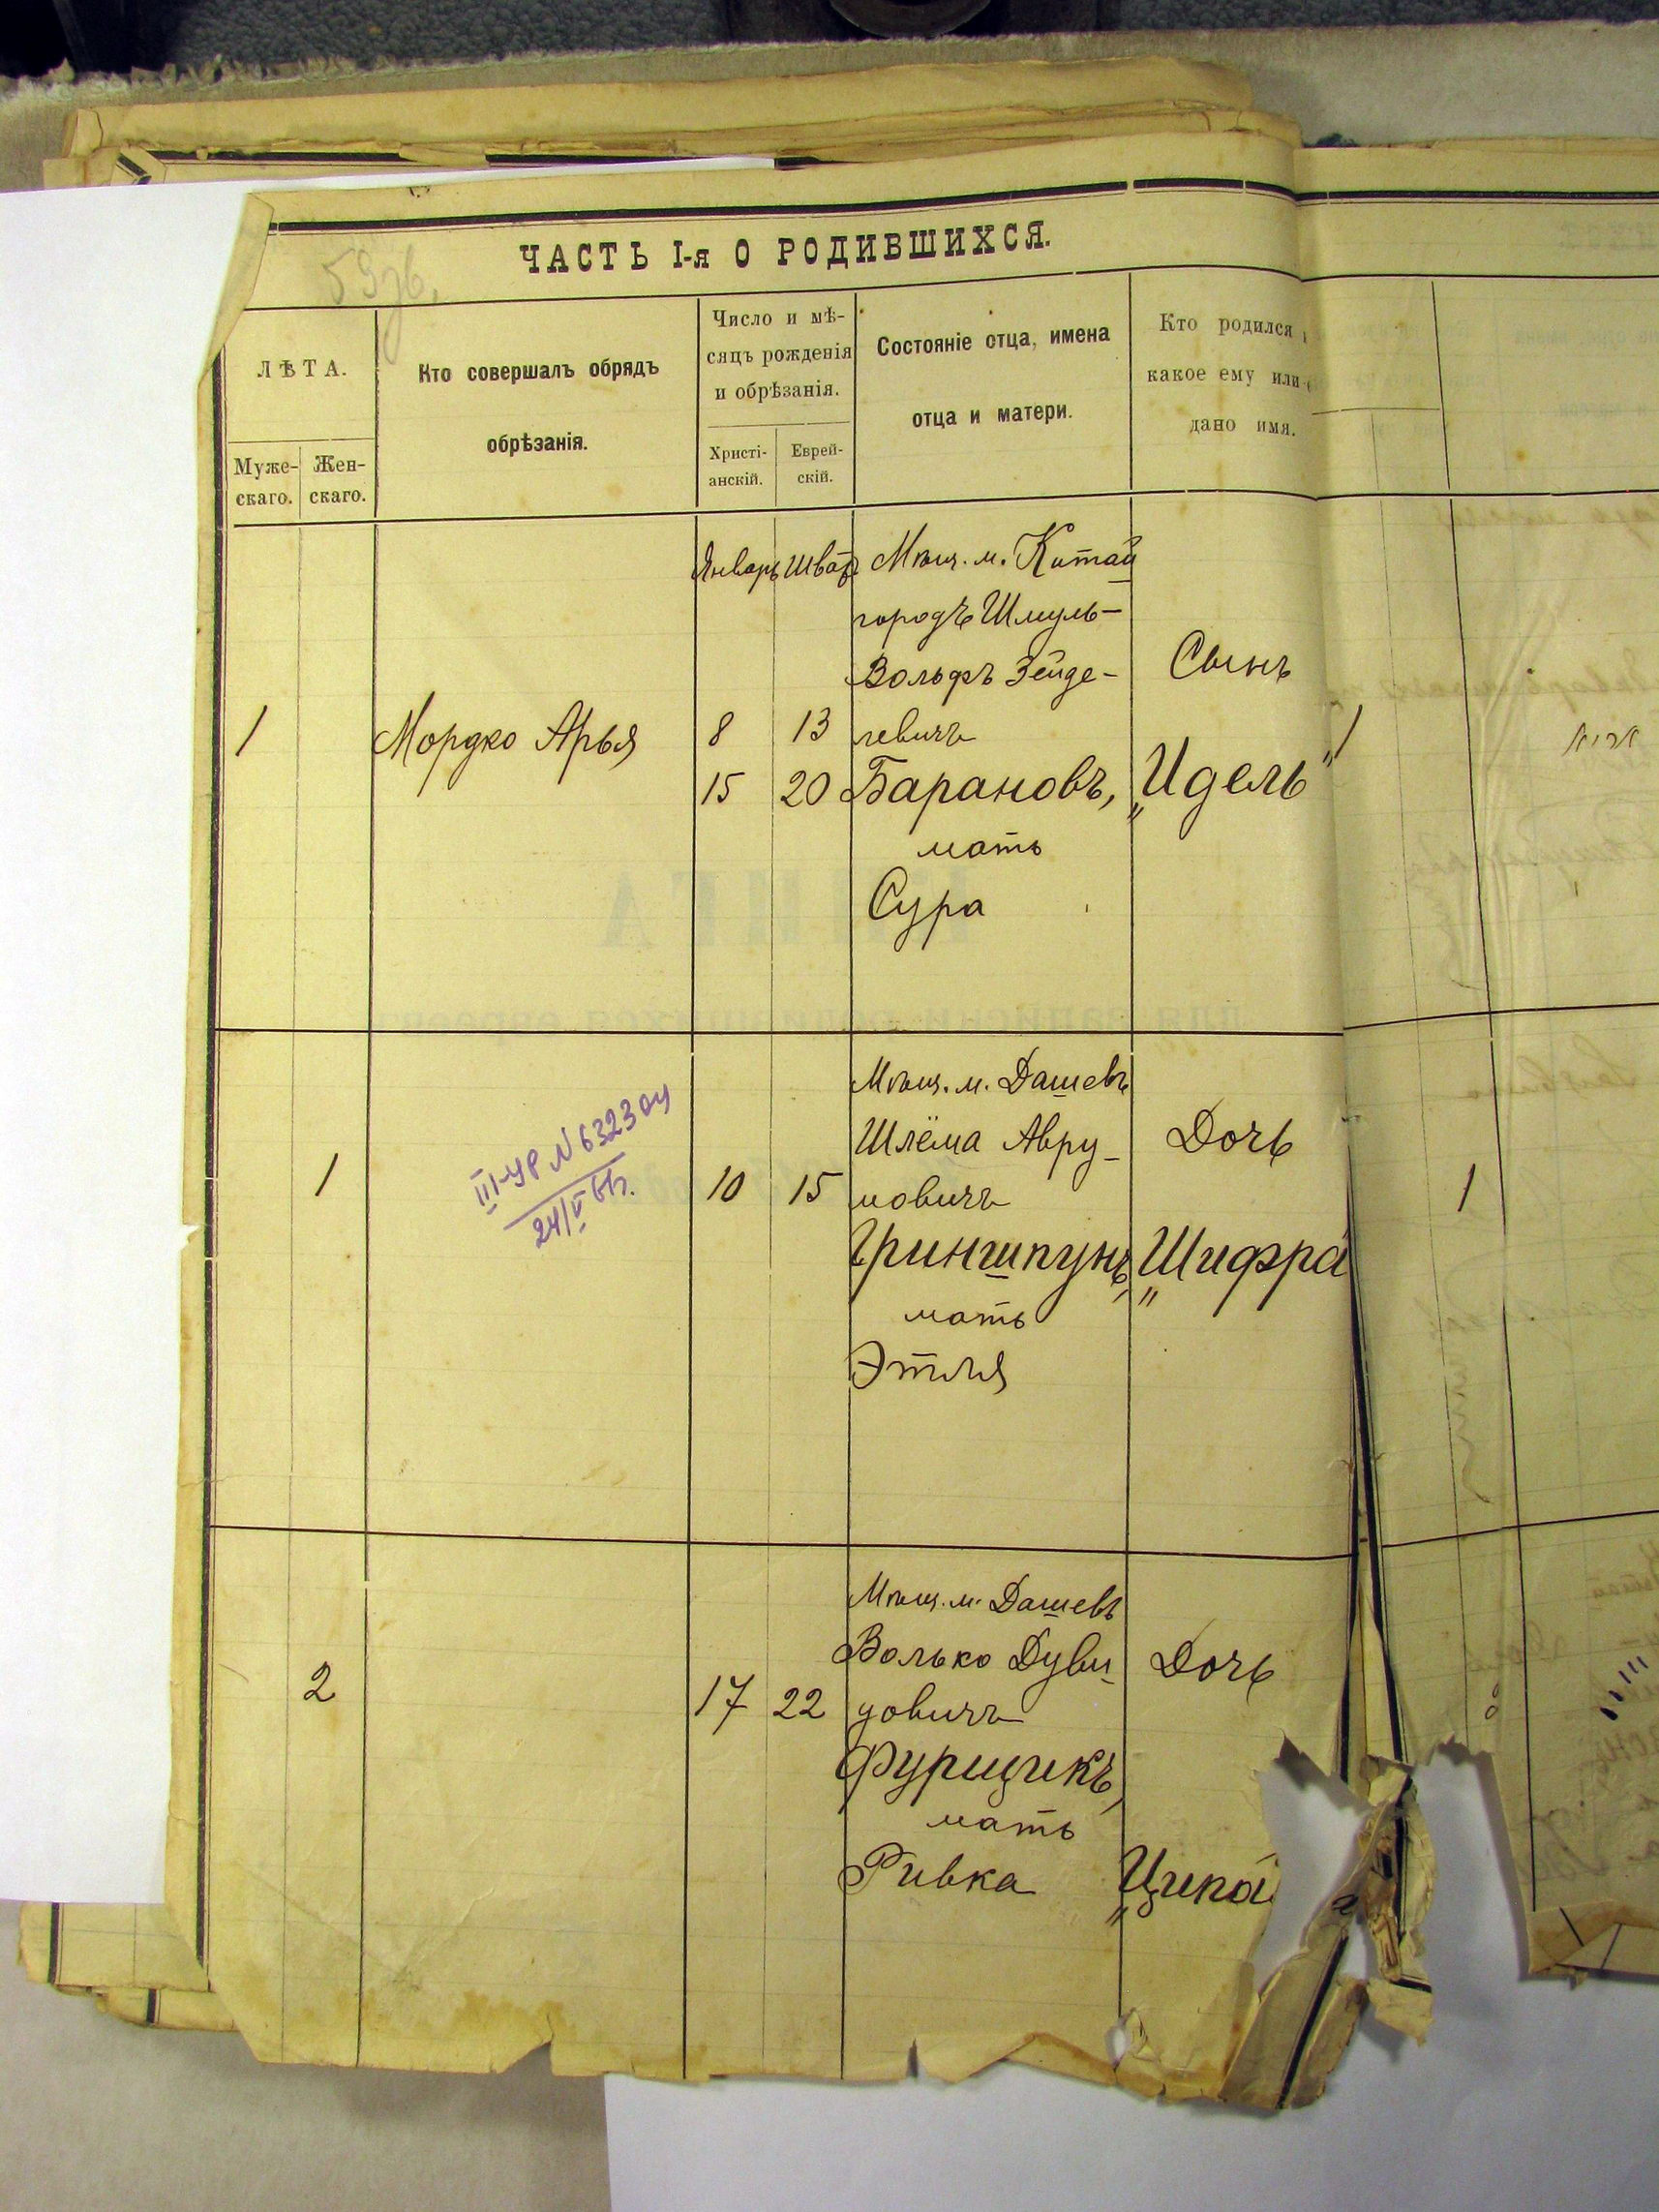 ЧАСТЬ I-я О РОДИВШИХСЯ.
ЛѢТА.
Муже-
скаго.
Жен-
скаго.
Кто совершалъ обрядъ
обрѣзанія.
Число и мѣ-
сяцъ рожденія
и обрѣзанія.
Христі-
анскій.
Еврей-
скій.
Состояніе отца, имена
отца и матери.
Кто родился
какое ему или
дано имя.
1
Мордко Арья
Январь
8
15
Шватъ
13
20
Мѣщ. м. Китай
городъ Шмуль-
Вольфъ Зейде-
левичъ
Барановъ,
мать
Сура
Сынъ
„Идель"
1
1
III-УР N 632304
24/V
10
15
Мѣщ. м. Дашевъ
Шлёма Авру-
мовичъ
Гриншпунъ,
мать
Этля
Дочь
„Шифра
1
2
17
22
Мѣщ. м. Дашевъ
Волько Дуви-
довичъ
Фурщикъ,
мать
Ривка
Дочь
„Ципа